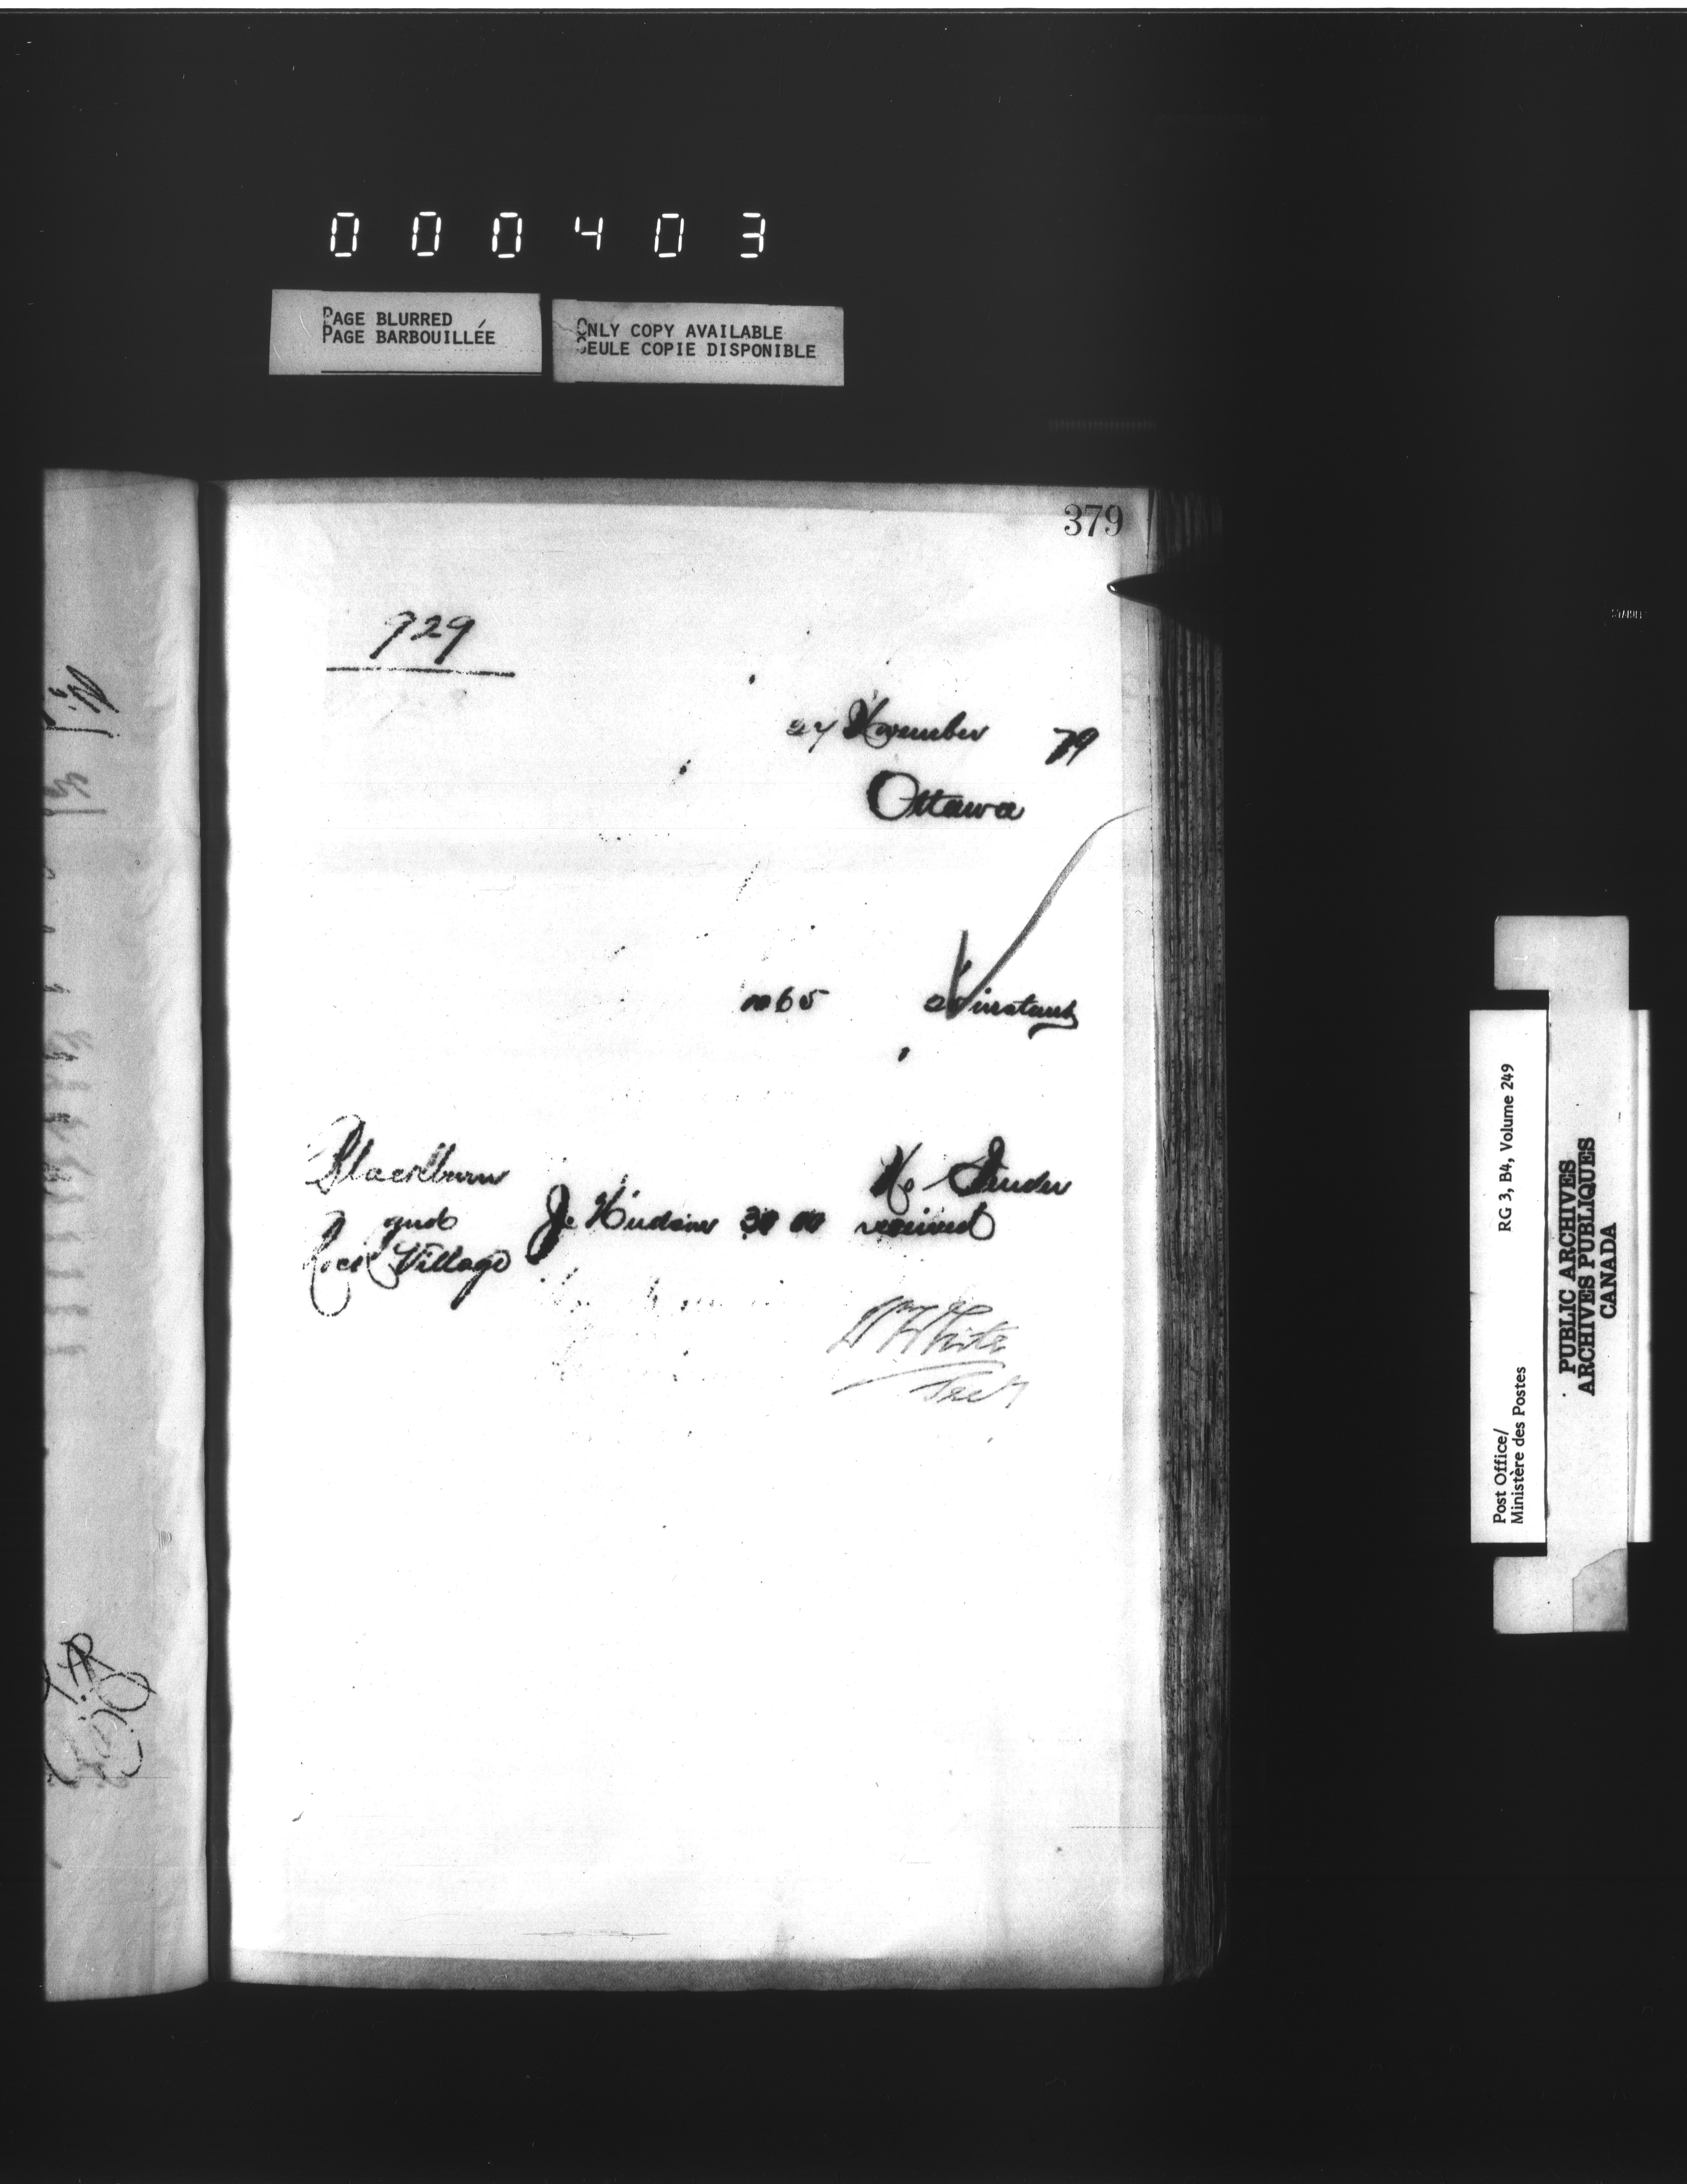 000403
PAGE BLURRED
PAGE BARBOUILLÉE
ONLY COPY AVAILABLE
SEULE COPIE DISPONIBLE
379
929
27 November 79
Ottawa
65 instant
Blackburn
and
Village
J. Hudson 30 00
No Tender
received
W White
Secy
Post Office/
Ministère des Postes
RG 3, B4, Volume 249
PUBLIC ARCHIVES
ARCHIVES PUBLIQUES
CANADA